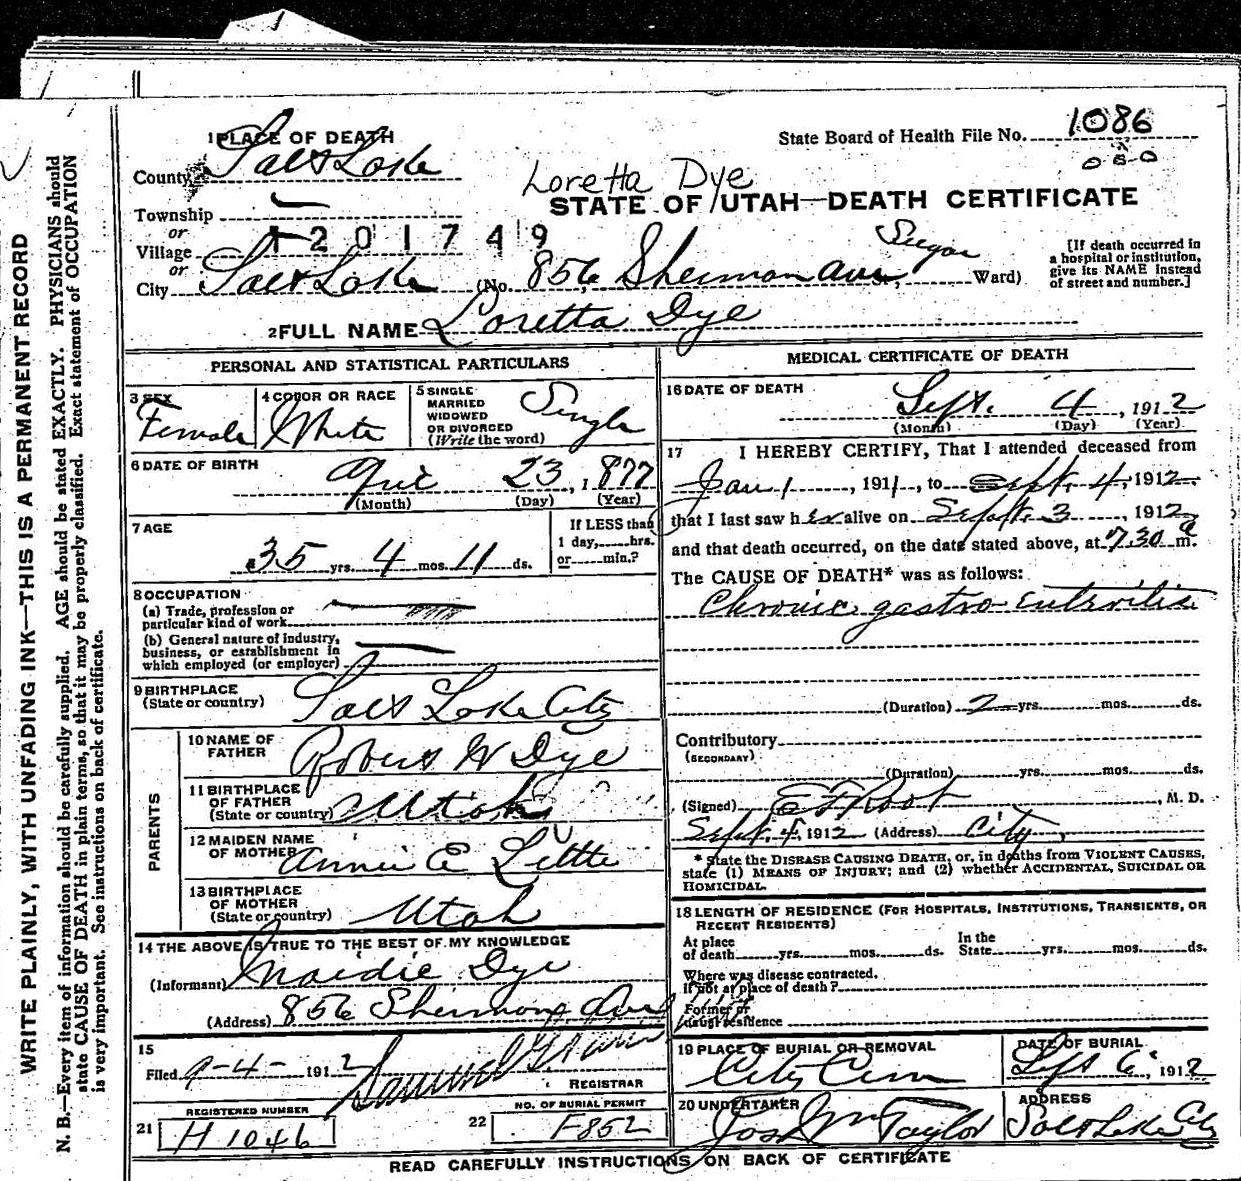 1 PLACE OF DEATH
State Board of Health File No. 1086
County Salt Lake
Loretta Dye
Township
STATE OF UTAH—DEATH CERTIFICATE
or
Village
1201749
or
City Salt Lake (No. 856 Sherman Ave St., Sugar Ward)
[If death occurred in
a hospital or institution,
give its NAME instead
of street and number.]
2 FULL NAME Loretta Dye
PERSONAL AND STATISTICAL PARTICULARS
3 SEX
Female
4 COLOR OR RACE
White
5 SINGLE
MARRIED
WIDOWED
OR DIVORCED
(Write the word)
Single
6 DATE OF BIRTH
April 23, 1877
(Month) (Day) (Year)
7 AGE
35 yrs. 4 mos. 11 ds.
If LESS than
1 day, hrs.
or min.?
8 OCCUPATION
(a) Trade, profession or
particular kind of work
(b) General nature of industry,
business, or establishment in
which employed (or employer)
9 BIRTHPLACE
(State or country)
Salt Lake City
PARENTS
10 NAME OF
FATHER
Robert W Dye
11 BIRTHPLACE
OF FATHER
(State or country)
Utah
12 MAIDEN NAME
OF MOTHER
Annie E Little
13 BIRTHPLACE
OF MOTHER
(State or country)
Utah
14 THE ABOVE IS TRUE TO THE BEST OF MY KNOWLEDGE
(Informant) Maidie Dye
(Address) 856 Sherman Ave
15
Filed 9-4- 1912
REGISTRAR
REGISTERED NUMBER
21 H 1046
NO. OF BURIAL PERMIT
22 F852
MEDICAL CERTIFICATE OF DEATH
16 DATE OF DEATH
Sept. 4, 1912
(Month) (Day) (Year)
17 I HEREBY CERTIFY, That I attended deceased from
Jan 1, 1911, to Sept. 4, 1912
that I last saw her alive on Sept. 3, 1912
and that death occurred, on the date stated above, at 7.30 a m.
The CAUSE OF DEATH* was as follows:
Chronic gastro-enteritis
(Duration) 2 yrs. mos. ds.
Contributory
(SECONDARY)
(Duration) yrs. mos. ds.
(Signed) E F Root, M. D.
Sept. 4, 1912 (Address) City
* State the DISEASE CAUSING DEATH, or, in deaths from VIOLENT CAUSES,
state (1) MEANS OF INJURY; and (2) whether ACCIDENTAL, SUICIDAL OR
HOMICIDAL.
18 LENGTH OF RESIDENCE (FOR HOSPITALS, INSTITUTIONS, TRANSIENTS, OR
RECENT RESIDENTS)
At place
of death yrs. mos. ds.
In the
State yrs. mos. ds.
Where was disease contracted.
If not at place of death?
Former or
usual residence
19 PLACE OF BURIAL OR REMOVAL
City Cem
DATE OF BURIAL
Sept 6, 1912
20 UNDERTAKER
Jos Wm Taylor
ADDRESS
Salt Lake City
READ CAREFULLY INSTRUCTIONS ON BACK OF CERTIFICATE
WRITE PLAINLY, WITH UNFADING INK—THIS IS A PERMANENT RECORD
N. B.—Every item of information should be carefully supplied. AGE should be stated EXACTLY. PHYSICIANS should
state CAUSE OF DEATH in plain terms, so that it may be properly classified. Exact statement of OCCUPATION
is very important. See instructions on back of certificate.